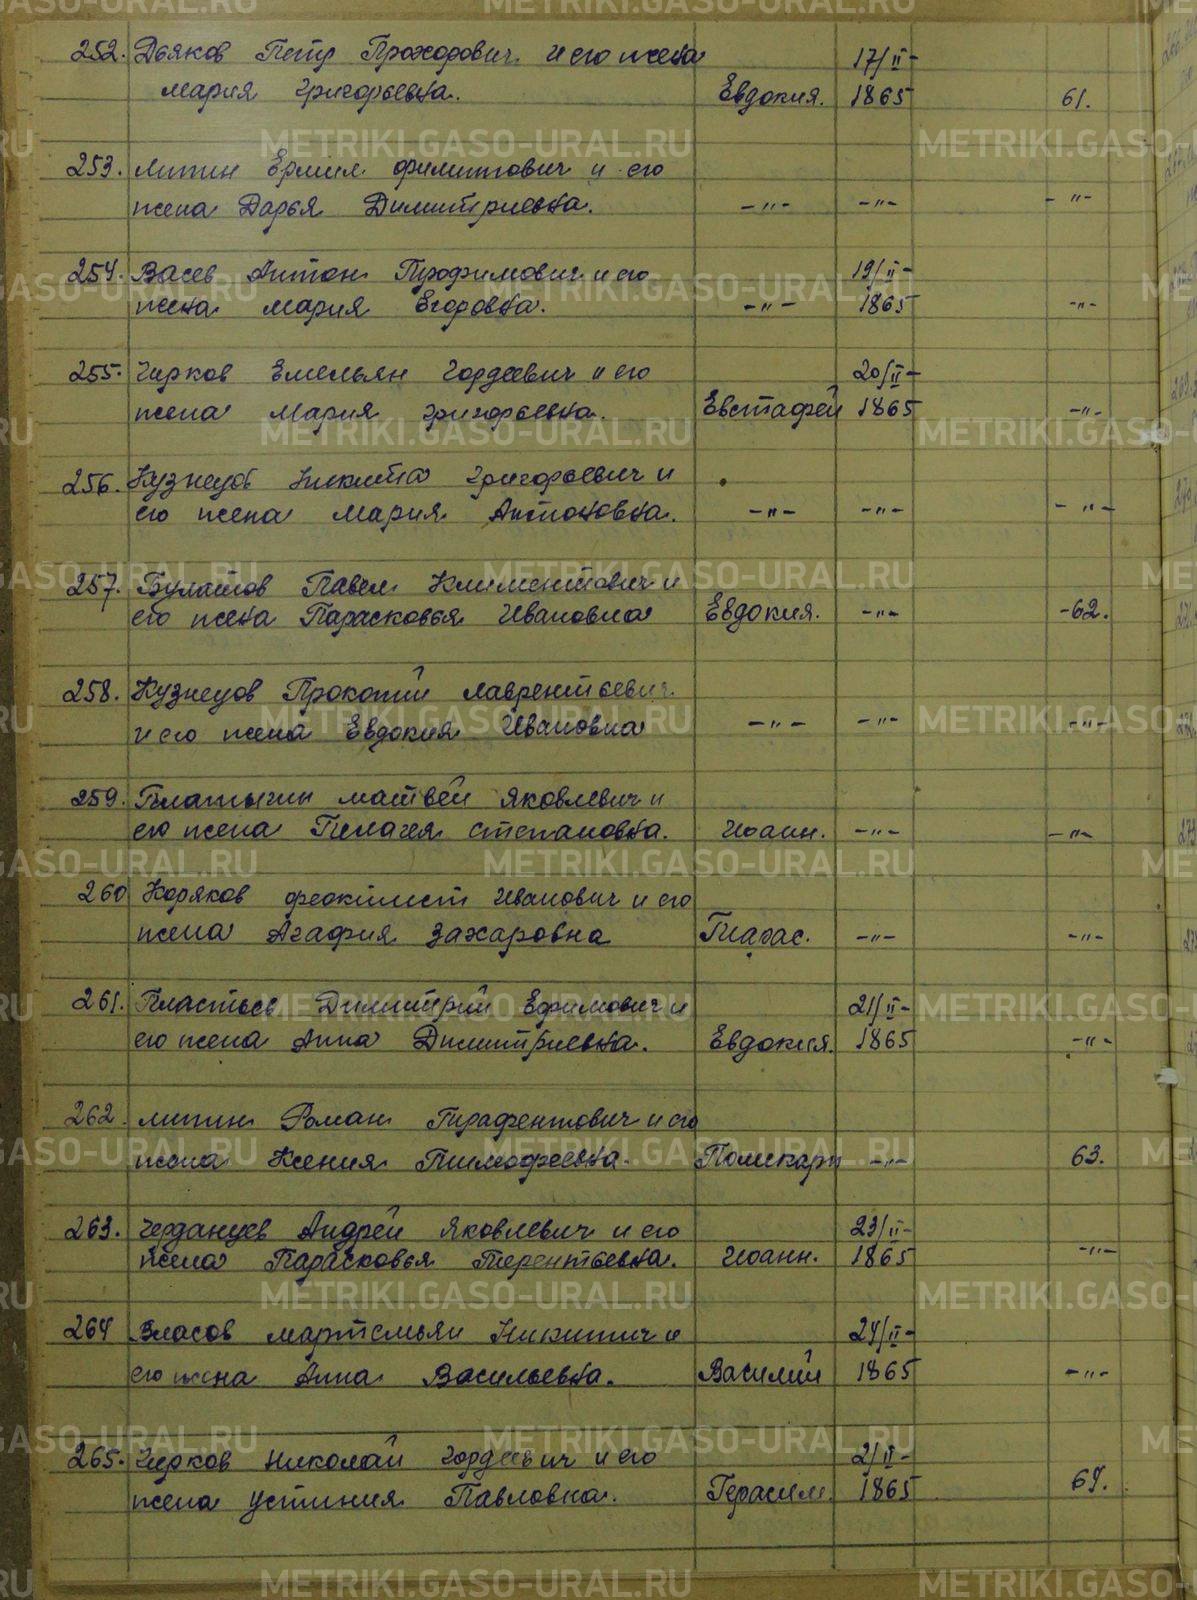 252. Дьяков Петр Прохорович и его жена 17/II-
Мария Григорьевна. Евдокия. 1865 61.
253. Липин Ермил Филиппович и его
жена Дарья Димитриевна. -"- -"- -"-
254. Васев Антон Трофимович и его 19/II-
жена Мария Егоровна. -"- 1865 -"-
255. Чирков Емельян Гордеевич и его 20/II-
жена Мария Григорьевна. Евстафей 1865 -"-
256. Кузнецов Никита Григорьевич и
его жена Мария Антоновна. -"- -"- -"-
257. Булатов Павел Климентович и
его жена Парасковья Ивановна Евдокия. -"- -62.
258. Кузнецов Прокопий Лаврентьевич
и его жена Евдокия Ивановна -"- -"- -"-
259. Платыгин Матвей Яковлевич и
его жена Пелагея Степановна. Иоанн. -"- -"-
260 Коряков Феоктист Иванович и его
жена Агафия Захаровна Тарас. -"- -"-
261. Пластьев Димитрий Ефимович и 21/II-
его жена Анна Димитриевна. Евдокия. 1865 -"-
262. Липин Роман Парфентович и его
жена Ксения Тимофеевна. Поликарп -"- 63.
263. Черданцев Андрей Яковлевич и его 23/II-
жена Парасковья Терентьевна. Иоанн. 1865 -"-
264 Власов Мартемьян Никитич и 24/II-
его жена Анна Васильевна. Василий 1865 -"-
265. Чирков Николай Гордеевич и его 2/II-
жена Устиния Павловна. Герасим. 1865 64.
METRIKI.GASO-URAL.RU